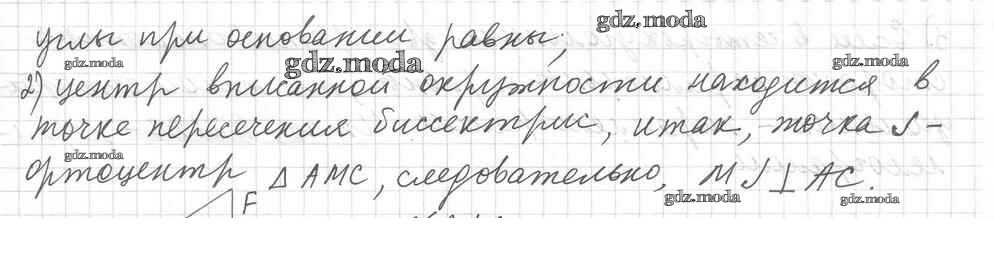 gdz.moda
углы при основании равны;
gdz.moda gdz.moda gdz.moda
2) центр вписанной окружности находится в
точке пересечения биссектрис, итак, точка J -
gdz.moda
ортоцентр △ AMC, следовательно, MJ ⊥ AC.
gdz.moda gdz.moda
F